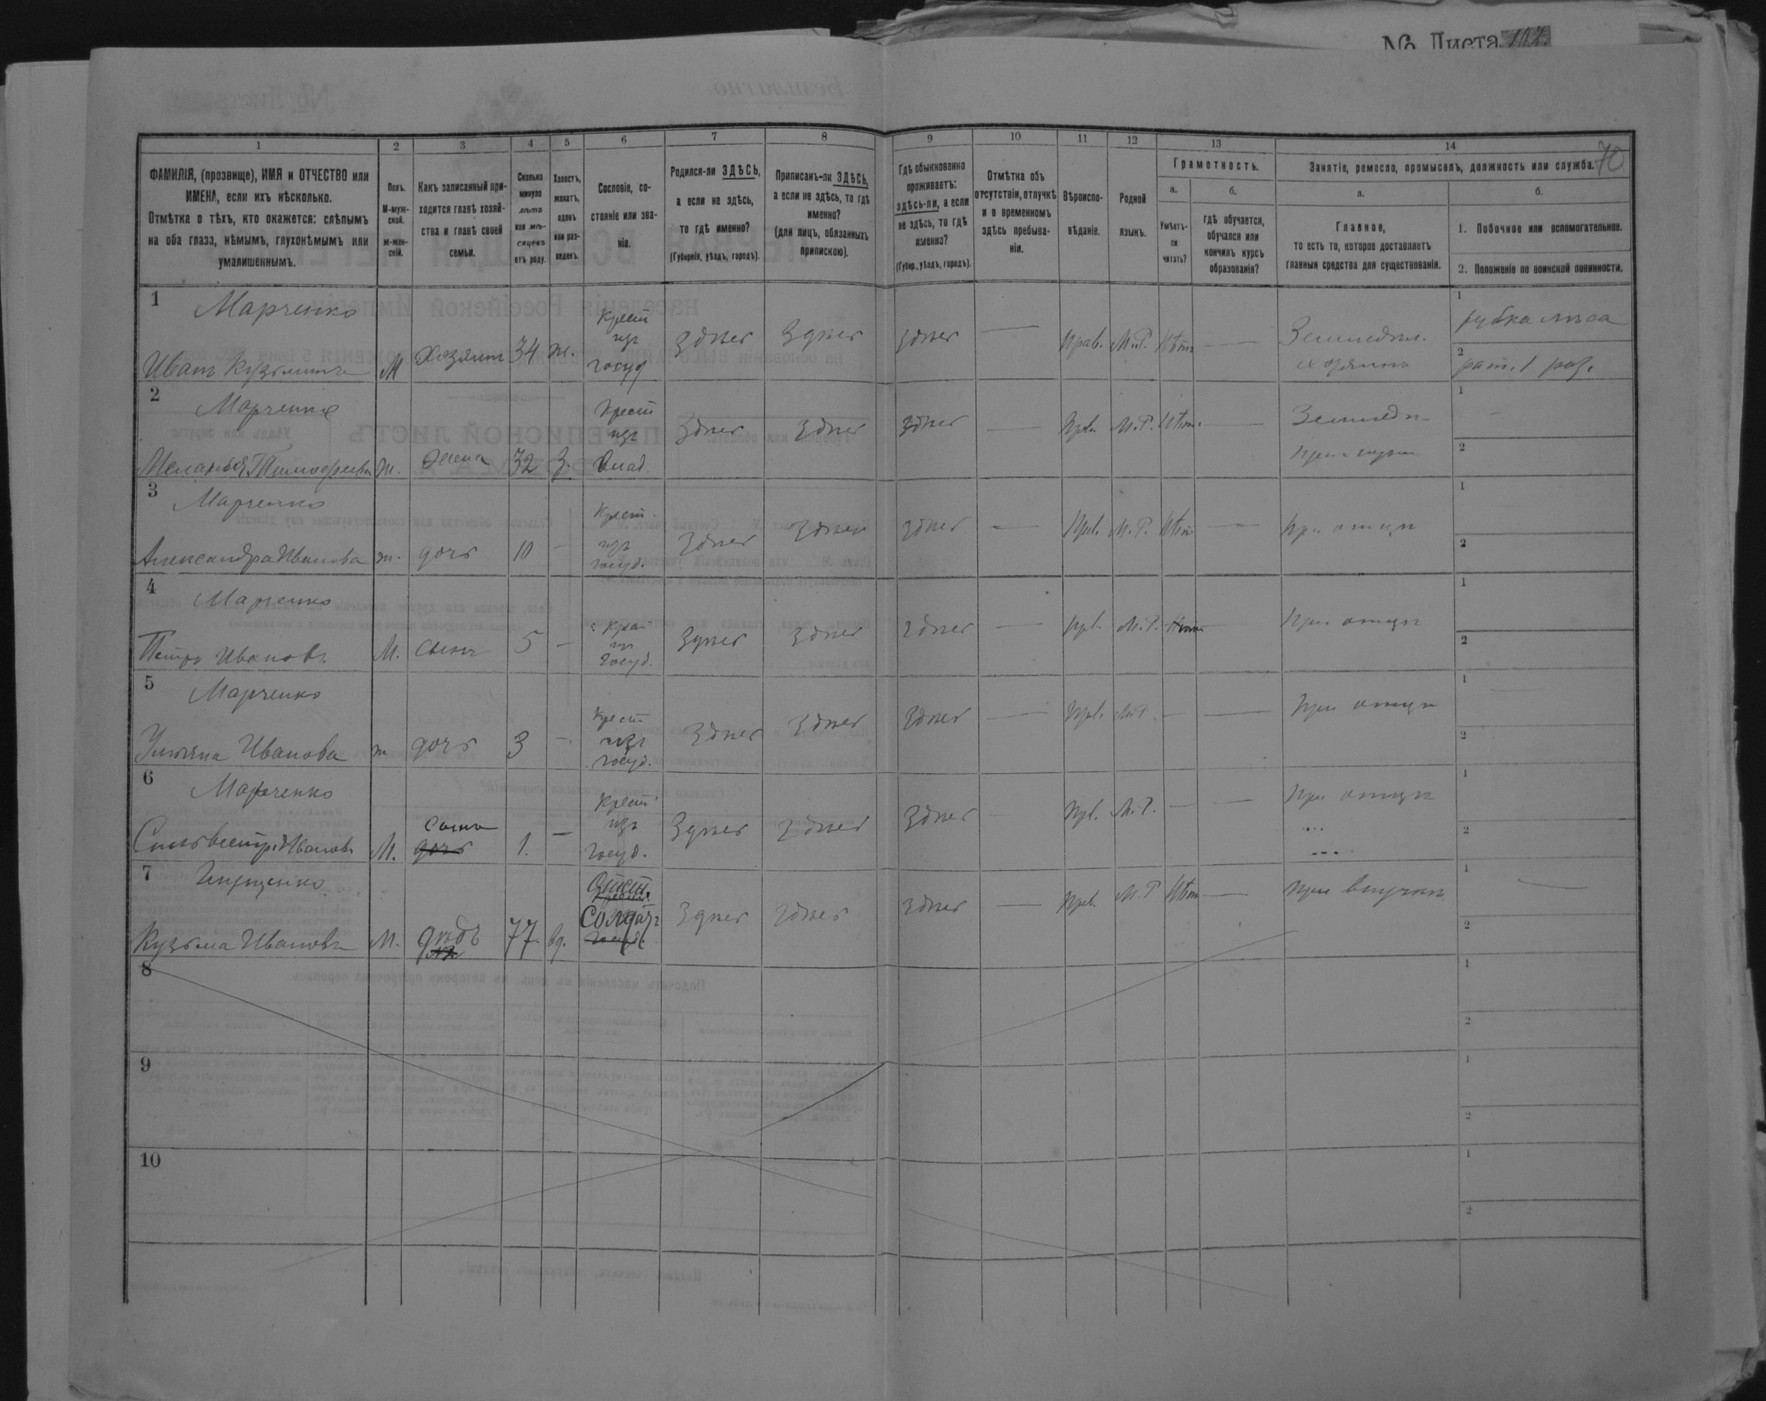 № Листа
70
1 2 3 4 5 6 7 8 9 10 11 12 13 14
ФАМИЛІЯ, (прозвище), ИМЯ и ОТЧЕСТВО или ИМЕНА, если ихъ нѣсколько.
Отмѣтка о тѣхъ, кто окажется: слѣпымъ на оба глаза, нѣмымъ, глухонѣмымъ или умалишеннымъ.
Полъ.
М-мужской.
ж-женскій.
Какъ записанный приходится главѣ хозяйства и главѣ своей семьи.
Сколько минуло лѣтъ или мѣсяцевъ отъ роду.
Холостъ, женатъ, вдовъ или разведенъ.
Сословіе, состояніе или званіе.
Родился-ли ЗДѢСЬ, а если не здѣсь, то гдѣ именно?
(Губернія, уѣздъ, городъ).
Приписанъ-ли ЗДѢСЬ, а если не здѣсь, то гдѣ именно?
(для лицъ, обязанныхъ припискою).
Гдѣ обыкновенно проживаетъ: здѣсь-ли, а если не здѣсь, то гдѣ именно?
(Губер., уѣздъ, городъ).
Отмѣтка объ отсутствіи, отлучкѣ и о временномъ здѣсь пребываніи.
Вѣроисповѣданіе.
Родной языкъ.
Грамотность.
а.
Умѣетъ-ли читать?
б.
гдѣ обучается, обучался или кончилъ курсъ образованія?
Занятіе, ремесло, промыселъ, должность или служба.
а.
Главное,
то есть то, которое доставляетъ главныя средства для существованія.
б.
1. Побочное или вспомогательное.
2. Положеніе по воинской повинности.
1 Марченко
Иванъ Кузьмичъ М Хозяинъ 34 ж. Крест изъ госуд здѣсь здѣсь здѣсь — Прав. М.Р. Нѣтъ — Земледѣл. хозяинъ
1 рубка лѣса
2 рат. 1 раз.
2 Марченко
Меланья Тимофеева ж. жена 32 з. Крест изъ здѣсь здѣсь здѣсь — Прв. М.Р. Нѣтъ — Земледѣ. при мужѣ
1 —
2
3 Марченко
Александра Иванова ж. дочь 10 — Крест. изъ госуд. здѣсь здѣсь здѣсь — Прв. М.Р. Нѣтъ — при отцѣ
1
2
4 Марченко
Петръ Ивановъ М. сынъ 5 — Крест изъ госуд. здѣсь здѣсь здѣсь — Прв. М.Р. Нѣтъ — при отцѣ
1
2
5 Марченко
Ульяна Иванова ж дочь 3 — Крест изъ госуд. здѣсь здѣсь здѣсь — Прв. М.Р. — — при отцѣ
1
2
6 Марченко
Сильвестръ Ивановъ М. сынъ дочь 1. — Крест изъ госуд. здѣсь здѣсь здѣсь — Прв. М.Р. — — при отцѣ
1
2
7
Кузьма Ивановъ М. дѣдъ 77. вд. солдатъ здѣсь здѣсь здѣсь — Прв. М.Р Нѣтъ — при внучкѣ
1 —
2
8
1
2
9
1
2
10
1
2